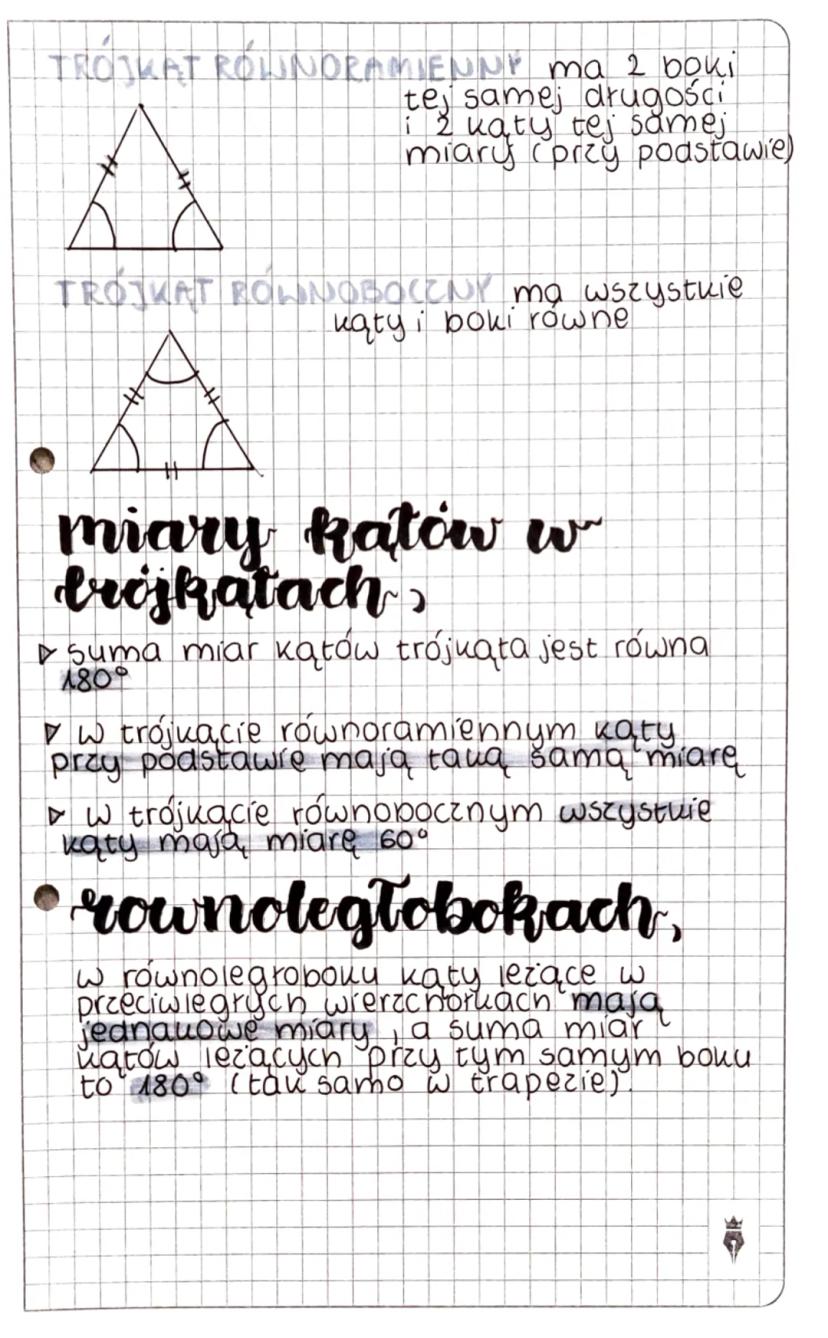 TRÓJKĄT RÓWNORAMIENNY ma 2 boki
tej samej długości
i 2 kąty tej samej
miary (przy podstawie)
TRÓJKĄT RÓWNOBOCZNY ma wszystkie
kąty i boki równe
miary kątów w
trójkątach,
▷ suma miar kątów trójkąta jest równa
180°
▷ w trójkącie równoramiennym kąty
przy podstawie mają taką samą miarę
▷ w trójkącie równobocznym wszystkie
kąty mają miarę 60°
rownoległobokach,
w równoległoboku kąty leżące w
przeciwległych wierzchołkach mają
jednakowe miary, a suma miar
kątów leżących przy tym samym boku
to 180° (tak samo w trapezie).